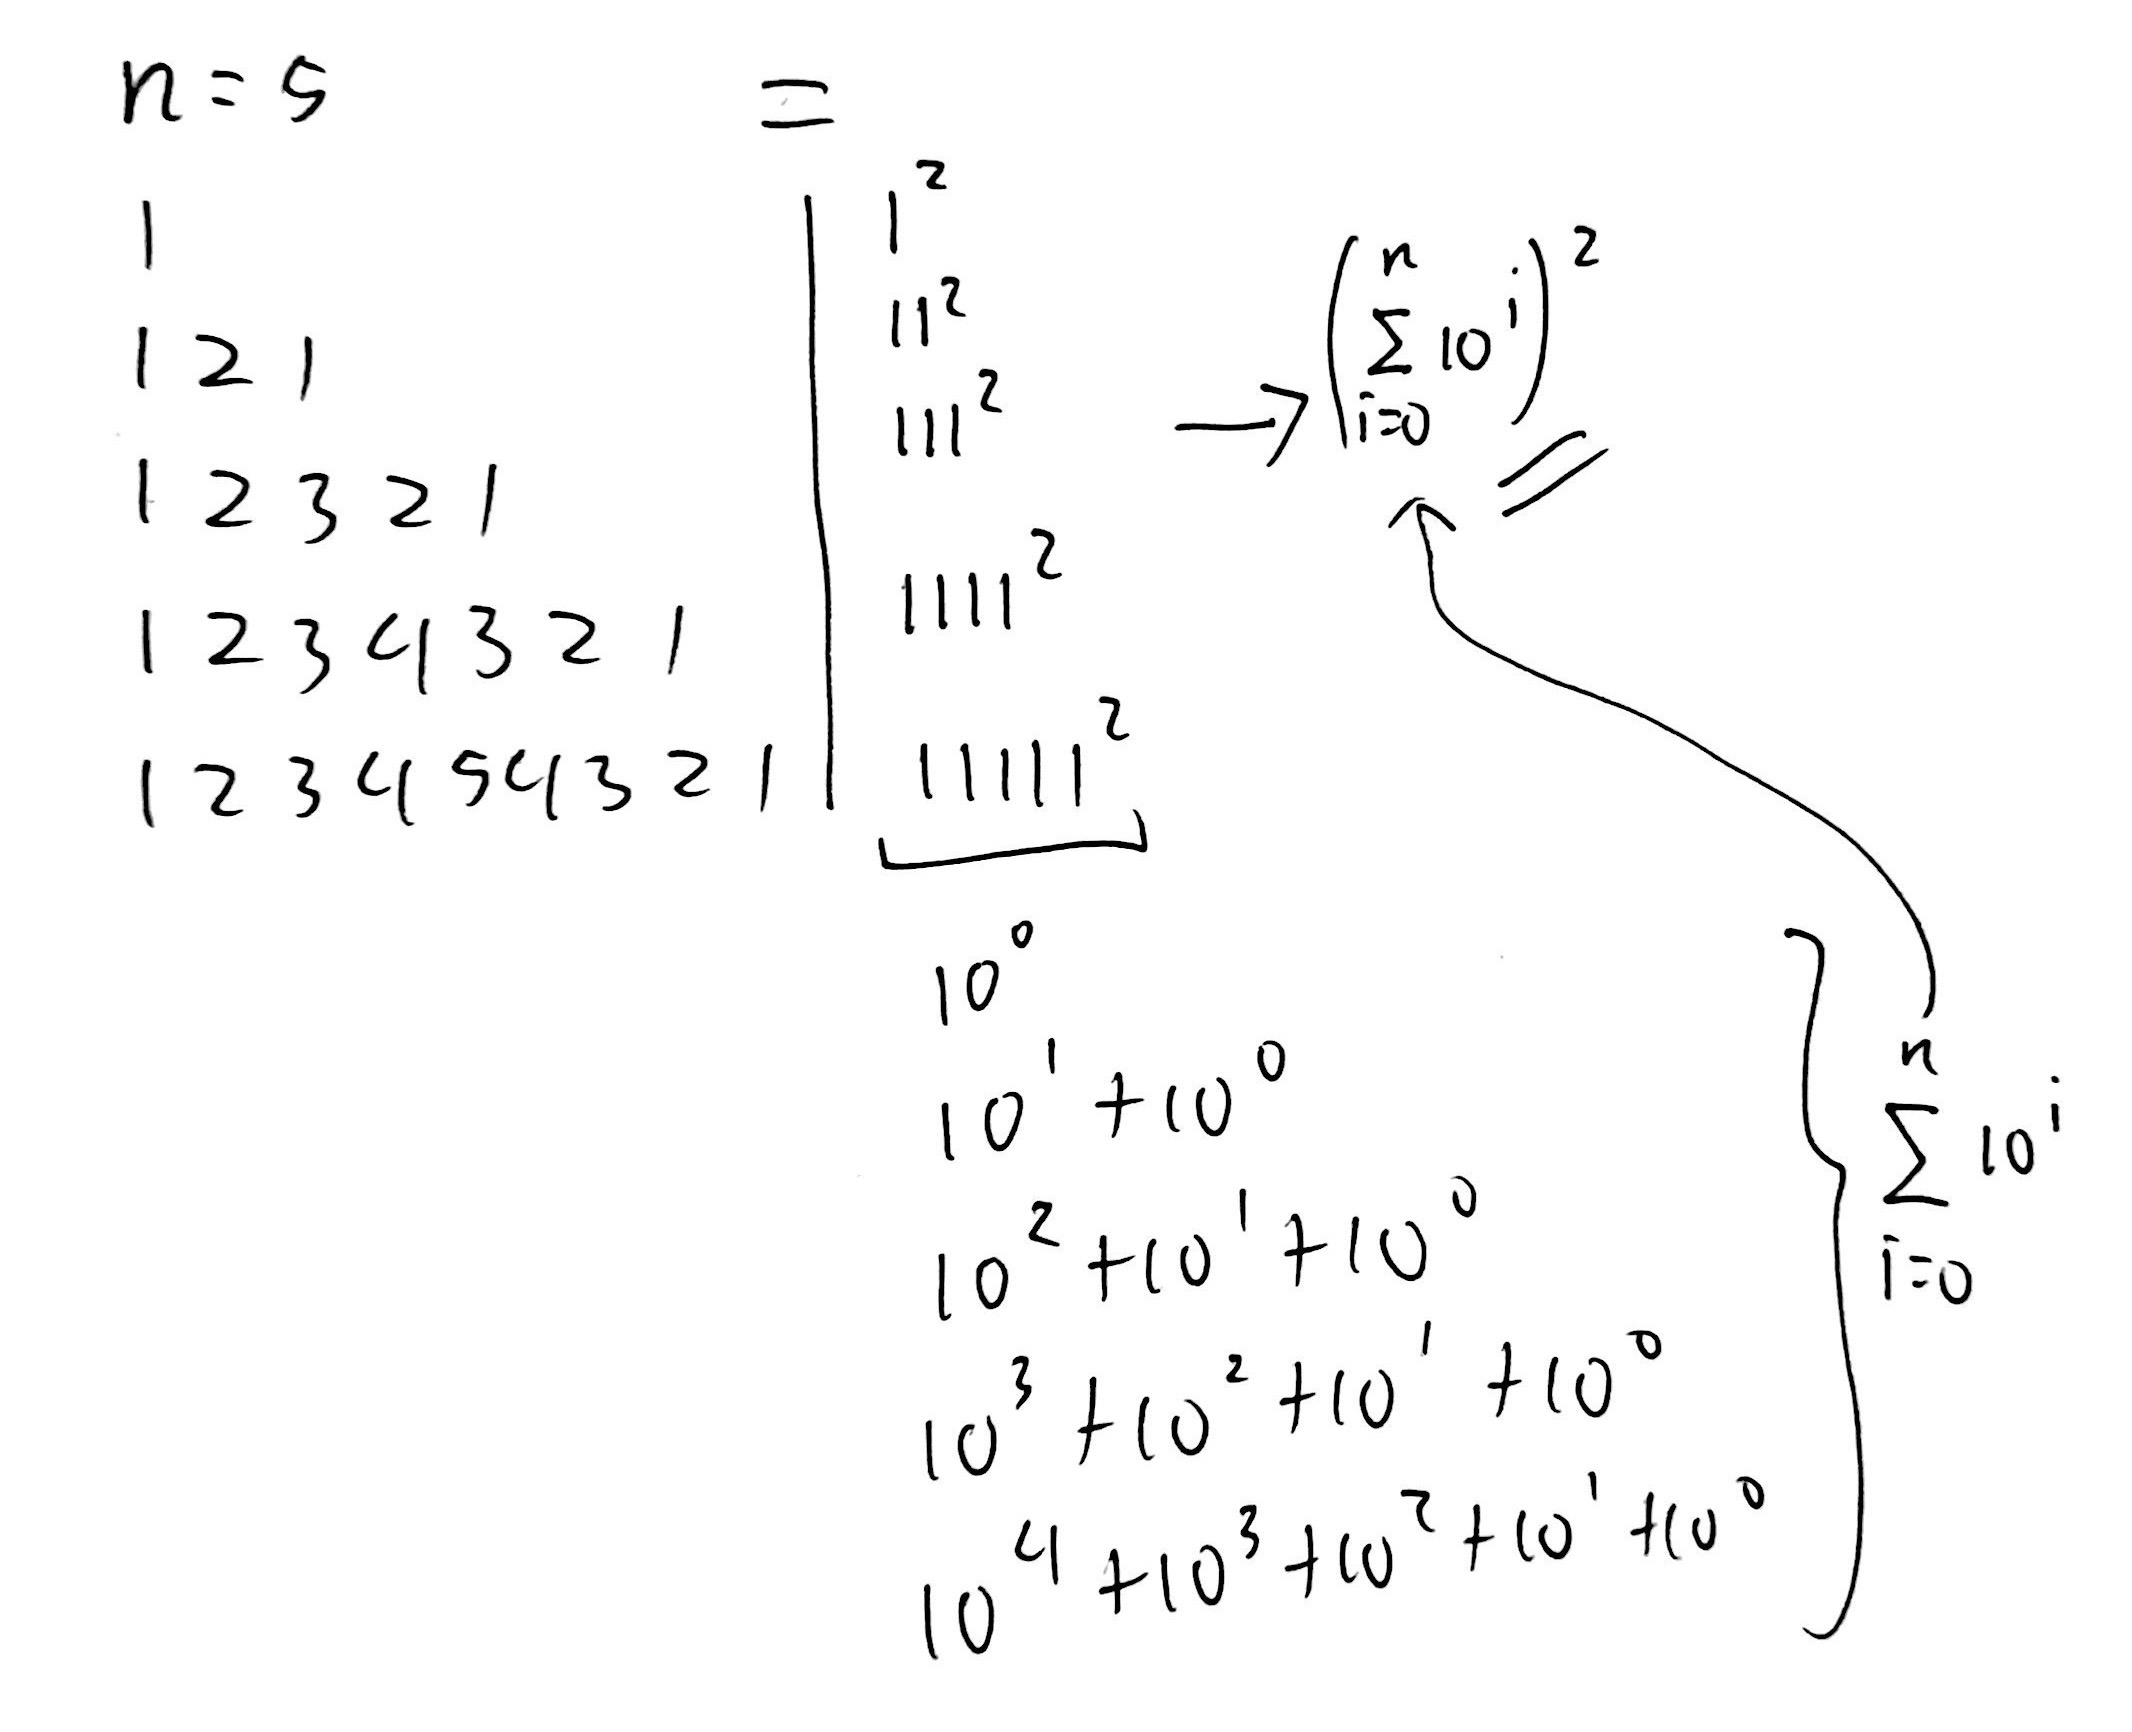 n = 5
=
1
1 2 1
1 2 3 2 1
1 2 3 4 3 2 1
1 2 3 4 5 4 3 2 1
1²
11²
111²
1111²
11111²
→ (∑ⁿᵢ₌₀ 10ⁱ)²
10⁰
10¹ + 10⁰
10² + 10¹ + 10⁰
10³ + 10² + 10¹ + 10⁰
10⁴ + 10³ + 10² + 10¹ + 10⁰
∑ⁿᵢ₌₀ 10ⁱ